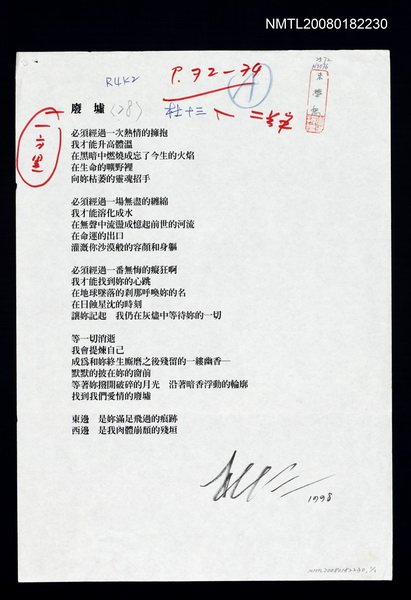 NMTL20080182230
R4K2
P.72-74
廢墟
杜十三
必須經過一次熱情的擁抱
我才能升高體溫
在黑暗中燃燒成忘了今生的火焰
在生命的曠野裡
向妳枯萎的靈魂招手
必須經過一場無盡的纏綿
我才能溶化成水
在無聲中流盪成憶起前世的河流
在命運的出口
灌溉你沙漠般的容顏和身軀
必須經過一番無悔的癡狂啊
我才能找到妳的心跳
在地球墜落的剎那呼喚妳的名
在日蝕星沈的時刻
讓妳記起　我仍在灰燼中等待妳的一切
等一切消逝
我會提煉自己
成為和妳終生廝磨之後殘留的一縷幽香—
默默的披在妳的窗前
等著妳撥開破碎的月光　沿著暗香浮動的輪廓
找到我們愛情的廢墟
東邊　是妳滿足飛過的痕跡
西邊　是我肉體崩頹的殘垣
1998
NMTL20080182230, 1/1